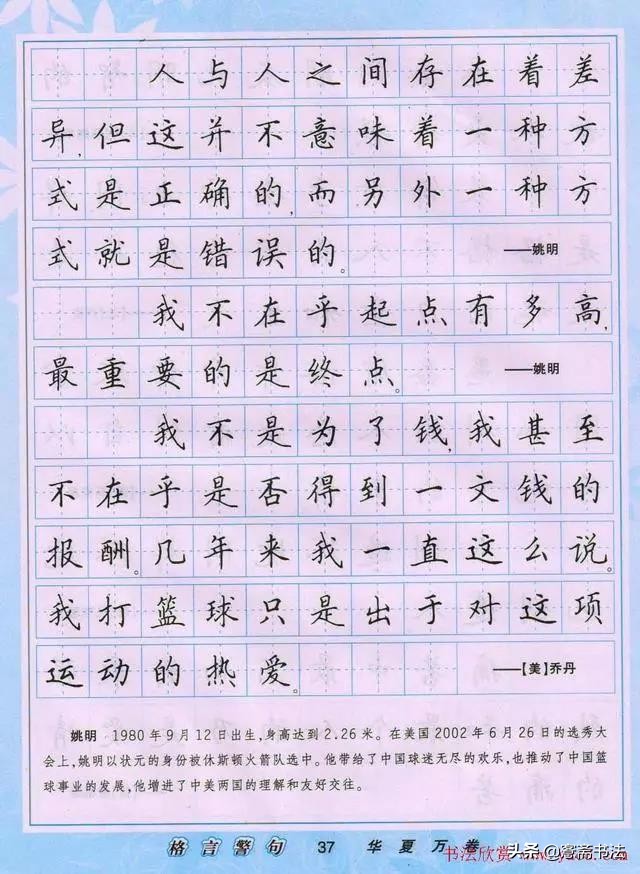 人与人之间存在着差
异,但这并不意味着一种方
式是正确的,而另外一种方
式就是错误的。 ——姚明
我不在乎起点有多高,
最重要的是终点。 ——姚明
我不是为了钱,我甚至
不在乎是否得到一文钱的
报酬。几年来我一直这么说。
我打篮球只是出于对这项
运动的热爱。 ——[美]乔丹
姚明 1980年9月12日出生,身高达到2.26米。在美国2002年6月26日的选秀大
会上,姚明以状元的身份被休斯顿火箭队选中。他带给了中国球迷无尽的欢乐,也推动了中国篮
球事业的发展,他增进了中美两国的理解和友好交往。
格言警句 37 华夏万卷
书法欣赏
头条@窝斋书法